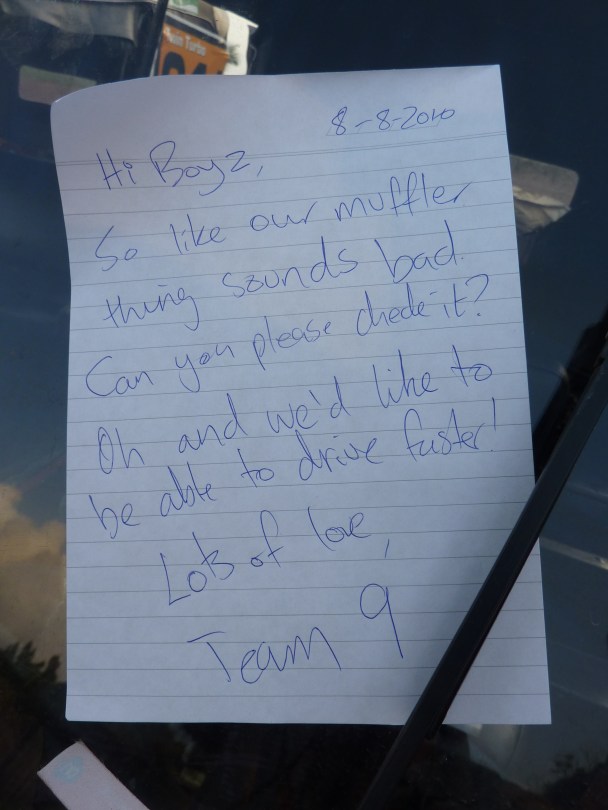 8-8-2010
Hi Boyz,
So like our muffler
thing sounds bad.
Can you please check it?
Oh and we'd like to
be able to drive faster!
Lots of love,
Team 9
Turbo